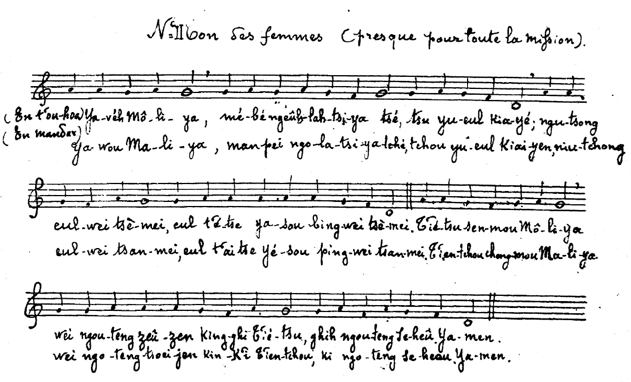 N: II Ton des femmes (presque pour toute la mission).
(En t'ou-hoa) Ya-véh Mô-li-ya, mé-bé ngeûh-lah-tsi-ya tsé, tsu yu-eul kia-yé; ngu-tsong
(En mandar) Ya wou Ma-li-ya, man-pei ngo-la-tsi-ya tchi, tchou yu-eul Kiai-yen, niu-tchong
eul-wei tsè-mei, eul t'è-tse ya-sou bing-wei tsè-mei. T'ié-tsu sen-mou Mô-li-ya
eul-wei tsan-mei, eul t'ai tse yé-sou ping-wei tsan-mei. T'ien-tchou chang-mou Ma-li-ya
wei ngou-teng zeû-zen King-ghi T'ié-tsu, ghih ngou teng se-heû Ya-men.
wei ngo-teng tsoei-jen Kin-Ki T'ien-tchou, ki ngo-teng se-heou Ya-men.